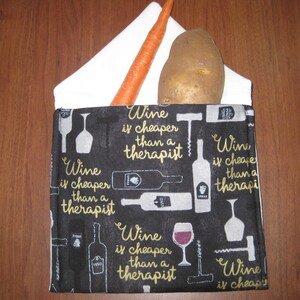 Wine
is cheaper
than a
therapist
Wine
is cheaper
than a
therapist
Wine
is cheaper
than a
therapist
Wine
is cheaper
than a
therapist
Wine
is cheaper